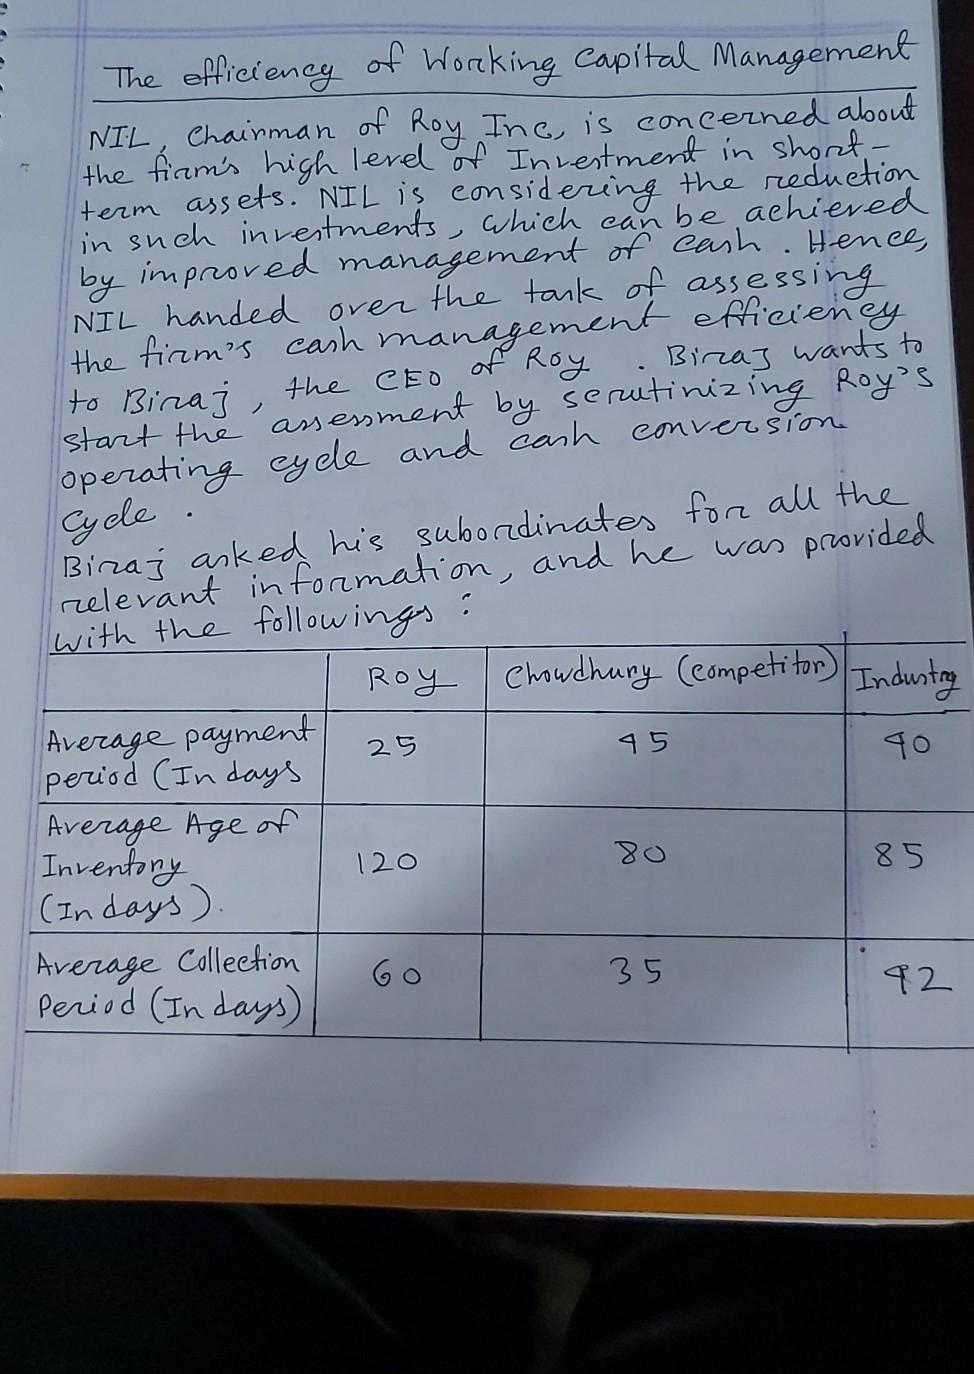 The efficiency of Working Capital Management
NIL, Chairman of Roy Inc, is concerned about
the firm's high level of Investment in short-
term assets. NIL is considering the reduction
in such investments, which can be achieved
by improved management of cash. Hence,
NIL handed over the task of assessing
the firm's cash management efficiency
to Biraj, the CEO of Roy . Biraj wants to
start the assessment by scrutinizing Roy's
operating cycle and cash conversion
cycle.
Biraj asked his subordinates for all the
relevant information, and he was provided
with the followings:
Roy Chowdhury (competitor) Industry
Average payment
period (In days 25 45 40
Average Age of
Inventory 120 80 85
(In days).
Average Collection
Period (In days) 60 35 42